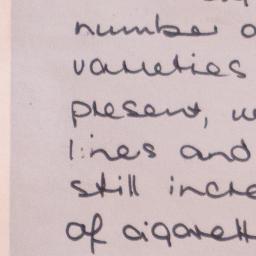 number o
varieties
present, w
lines and
still incre
of cigarett